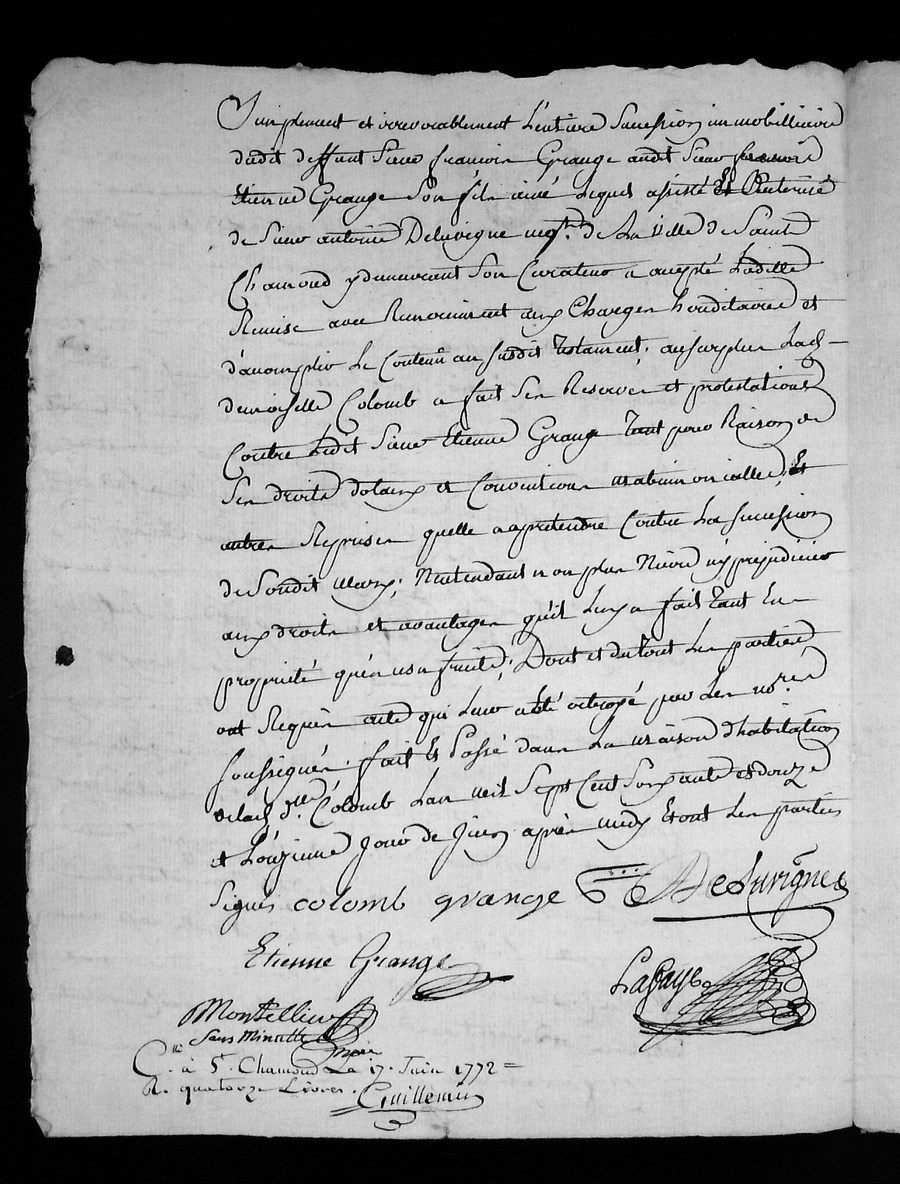 Simplement et irrevocablement L'entiere Succession immobilliaire
dudit deffunt Sieur francois Grange audit Sieur francois
Etienne Grange Son fils ainé Lequel assisté Et Authorisé
de Sieur antoine Delavigne negt. de La Ville de Saint
Chamond y demeurant Son Curateur a accepté Ladite
Remise avec Remerciment aux Charges hereditaires et
d'accomplir Le Contenû au susdit Testament, au surplus Lad.
demoiselle Colomb a fait Ses Reserves et protestations
Contre Ledit Sieur Etienne Grange Tant pour Raison de
Ses droits dotaux et Conventions matrimonialles, Et
autres Reprises quelle a a pretendre Contre La succession
de Sondit Mary; N'entendant non plus Nuire ny prejudicier
aux droits et avantages qu'il Luy a fait Tant En
proprieté qu'en usufruits; Dont et du tout Les parties
ont Requis acte qui Leur a été octroyé par Les nores.
soussignés. fait Et Passé dans La maison d'habitation
de lad. dlle. Colomb L'an mil Sept Cent Soixante et douze
et L'onzieme Jour de Juin après midy Et ont Les parties
Signés colomb grange Delavigne
Etienne Grange
Lafaye
Montellier
Sans Minutte
Cllé. à St. Chamond Le 17. Juin 1772 =
R. quatorze Livres. Guillemin